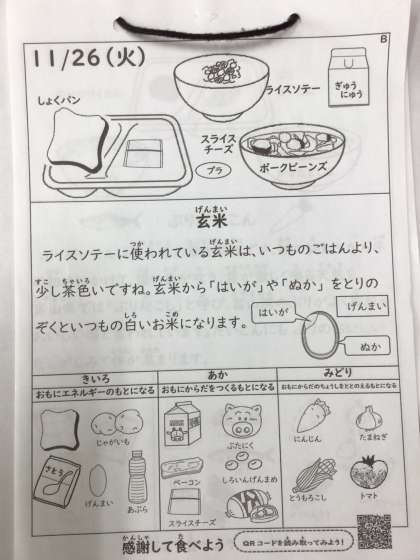 11/26(火)
B
しょくパン
ライスソテー
ぎゅう
にゅう
スライス
チーズ
プラ
ポークビーンズ
げんまい
玄米
つか げんまい
ライスソテーに使われている玄米は、いつものごはんより、
すこ ちゃいろ げんまい
少し茶色いですね。玄米から「はいが」や「ぬか」をとりの
しろ こめ
ぞくといつもの白いお米になります。
はいが
げんまい
ぬか
きいろ
おもにエネルギーのもとになる
あか
おもにからだをつくるもとになる
みどり
おもにからだのちょうしをととのえるもとになる
じゃがいも
さとう
げんまい
あぶら
ぶたにく
ベーコン
しろいんげんまめ
スライスチーズ
にんじん
たまねぎ
とうもろこし
トマト
かんしゃ た
感謝して食べよう
QRコードを読み取ってみよう!